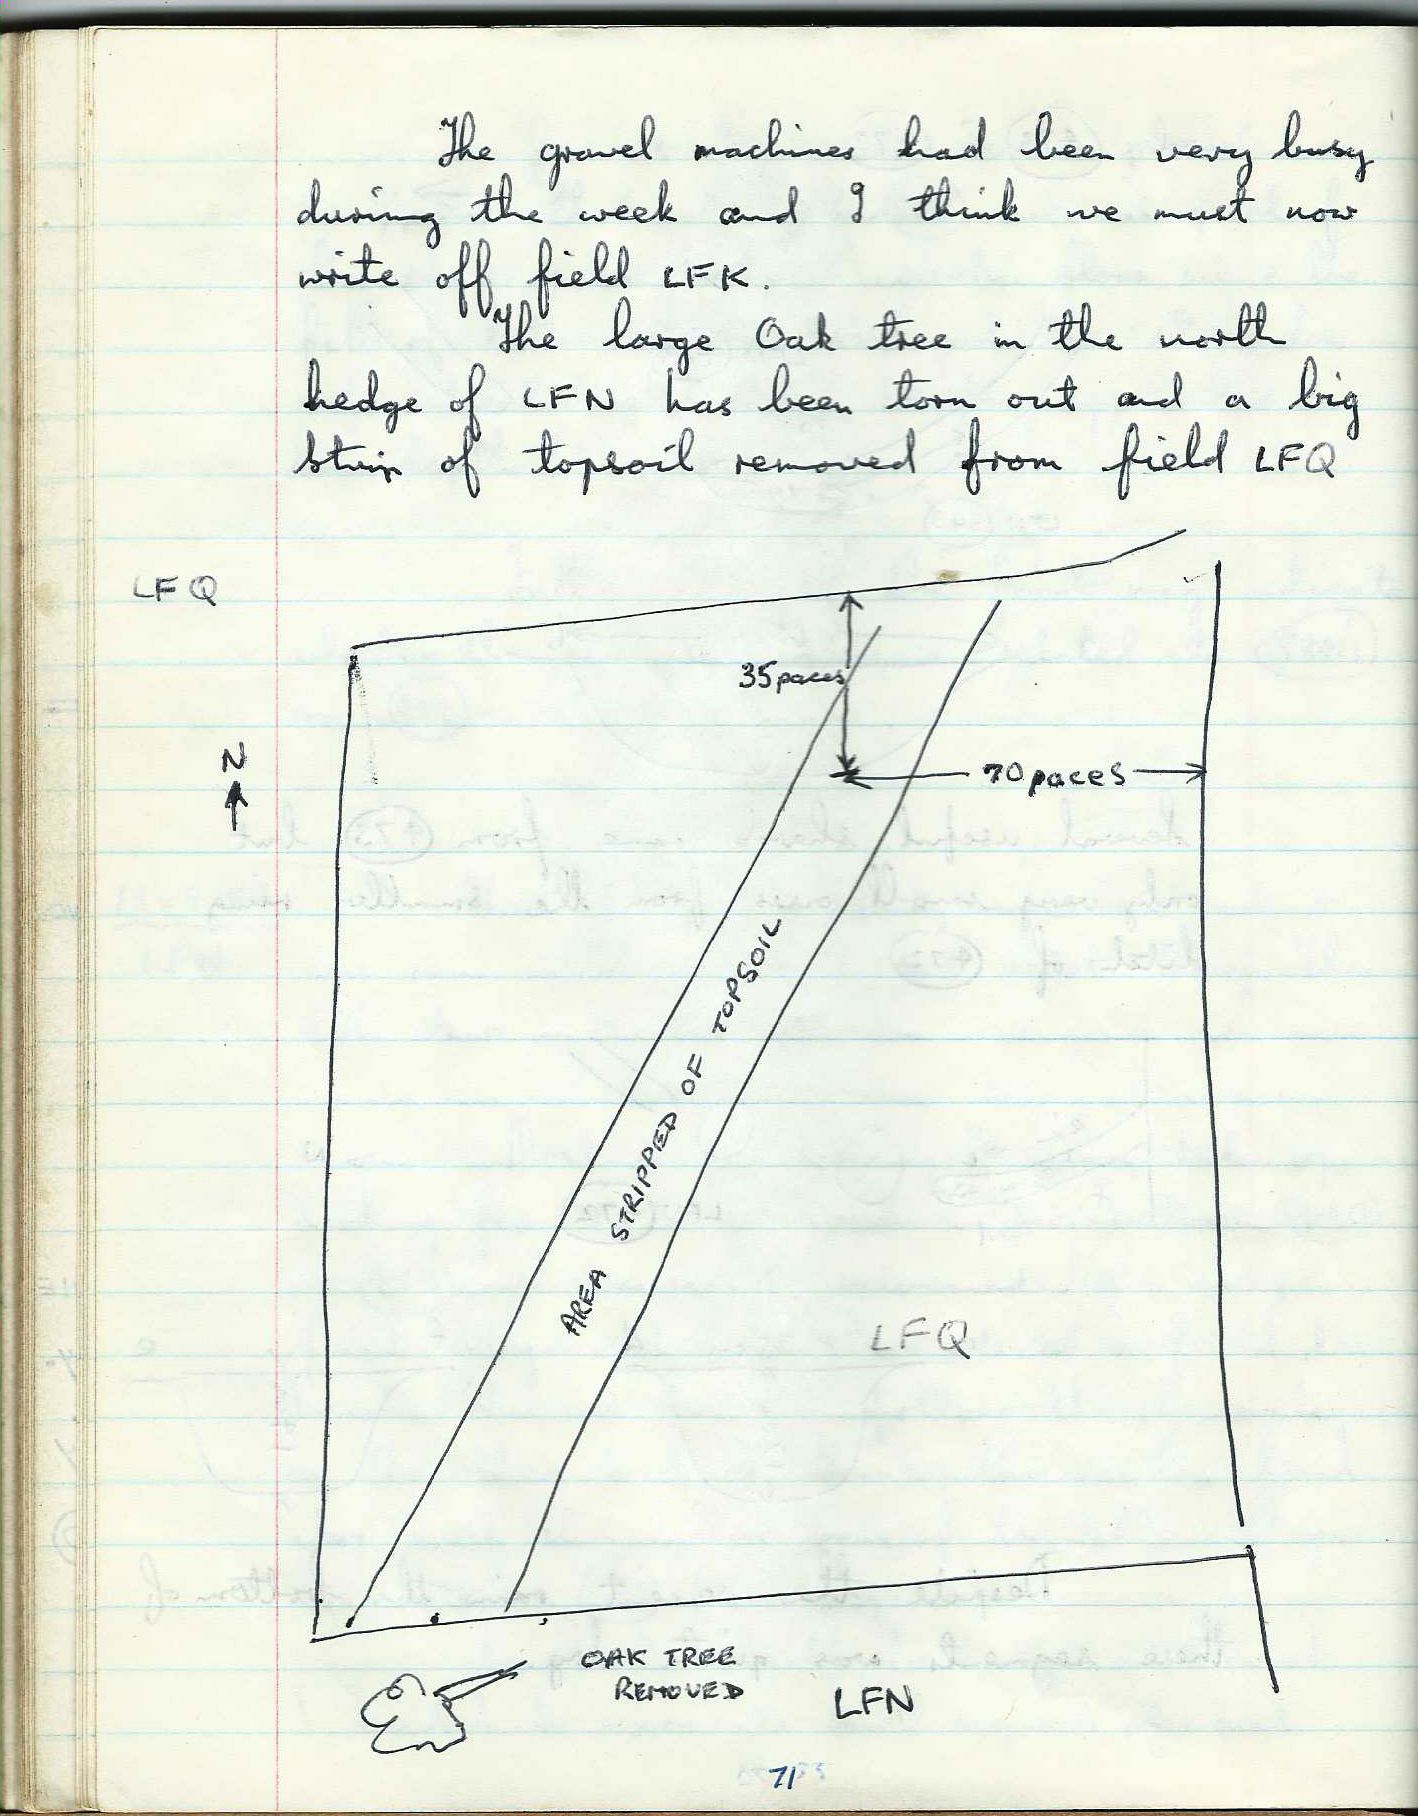 The gravel machines had been very busy
during the week and I think we must now
write off field LFK.
The large Oak tree in the north
hedge of LFN has been torn out and a big
strip of topsoil removed from field LFQ
LFQ
35 paces
N
70 paces
AREA STRIPPED OF TOPSOIL
LFQ
OAK TREE
REMOVED
LFN
71